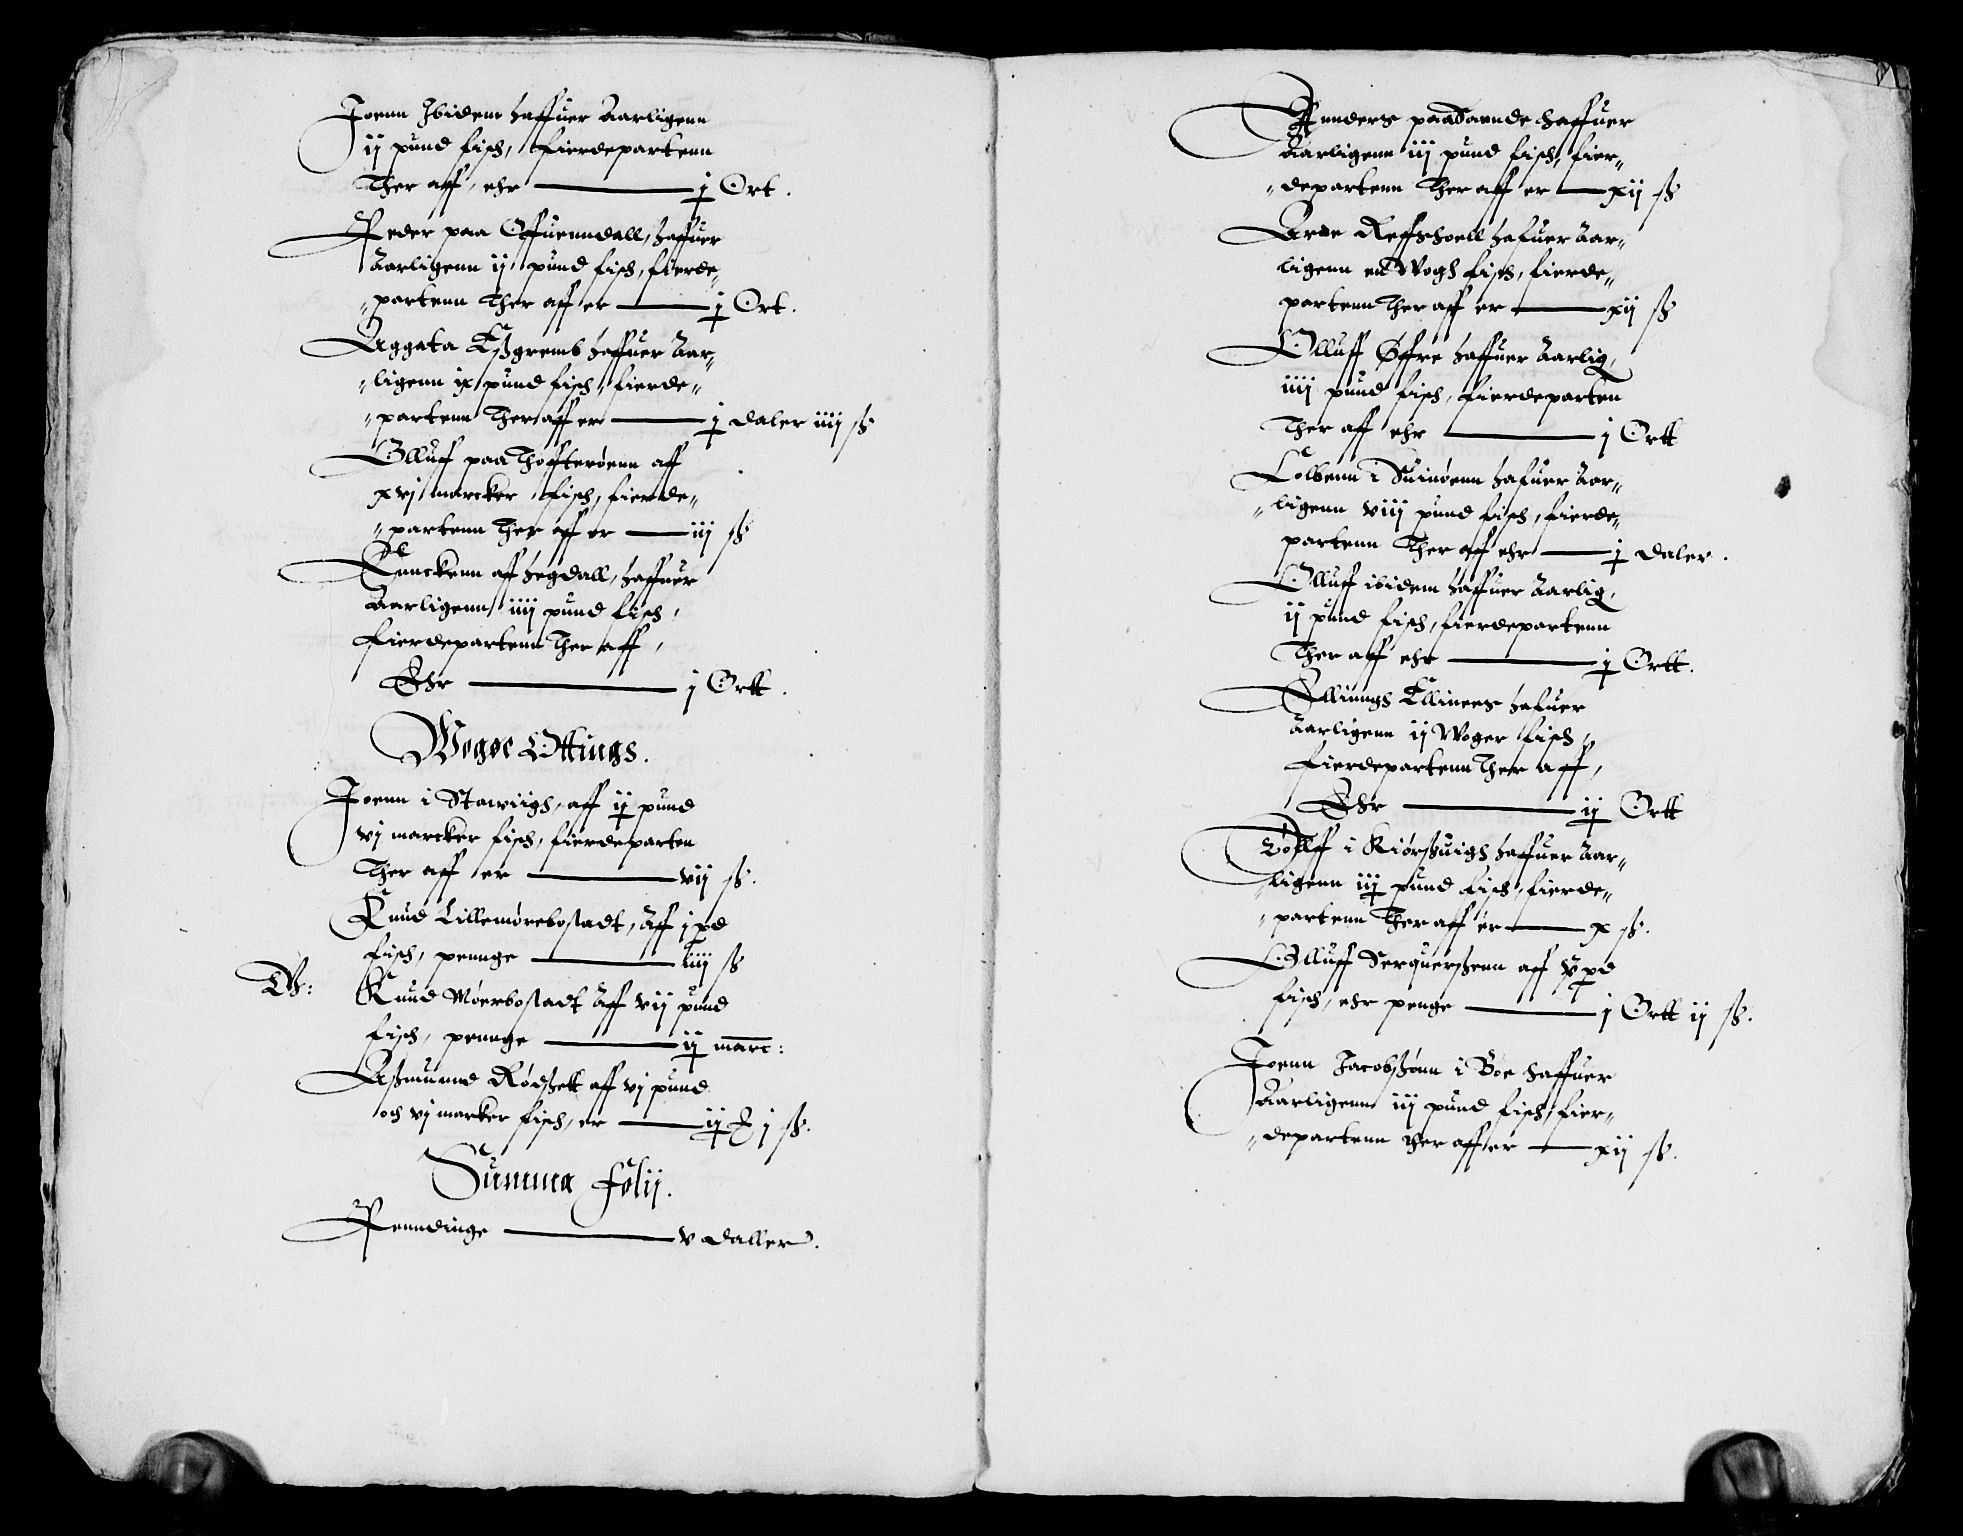 Joenn Jbidem haffuer Aarligenn
ij pund fisch, fierdepartenn
Ther aff, ehr — j Ort.
Peder paa Offuenndall, haffuer
Aarligenn ij pund fisch, fierde„
„partenn Ther aff er — j Ort.
Aggata haffuer Aar„
„ligenn ix pund fisch, fierde„
„partenn Ther aff er — j daler iiij ß
Olluff paa Thofterøenn aff
xvj marcker fisch, fierde„
„partenn Ther aff er — iij ß
aff Hegdall, haffuer
Aarligenn iiij pund fisch,
fierdepartenn Ther aff,
Ehr — j Ortt.
Wogøe Ottings.
Joenn i aff ij pund
vj marcker fisch, fierdeparten
Ther aff er — vij ß.
Knud Lillemørebostadt, Aff j pd
fisch, pennge — iiij ß
Knud Møerbostadt Aff vij pund
fisch, pennge — ij marc:
Aßmunnd Rødsett aff vj pund
och vj marker fisch, er — iij j ß.
Summa Folij.
Penndinge — v daller.
Annders paa haffuer
Aarligenn iij pund fisch, fier„
„departenn Ther aff er — xij ß
Arne hafuer Aar„
ligenn en Wogh fisch, fierde„
partenn Ther aff er — xij ß
Olluff Øffre haffuer Aarlig,
iiij pund fisch, fierdeparten
Ther aff ehr — j Ortt
Colbenn i Suinøenn hafuer Aar„
„ligenn viij pund fisch, fierde„
partenn Ther aff ehr — j daler.
Olluff ibidem haffuer Aarlig,
ij pund fisch, fierdepartenn
Ther aff ehr — j Ortt.
Ellinngh hafuer
Aarligenn ij Woger fisch,
fierdepartenn Ther aff,
Ehr — ij Ortt
i haffuer Aar„
ligenn iij pund fisch, fierde„
„partenn Ther aff er — x ß.
Olluff aff v pd
fisch, ehr penge — j Ortt ij ß.
Joenn Jacobßønn i Boe haffuer
Aarligenn iij pund fisch, fier„
„departenn ther aff er — xij ß.